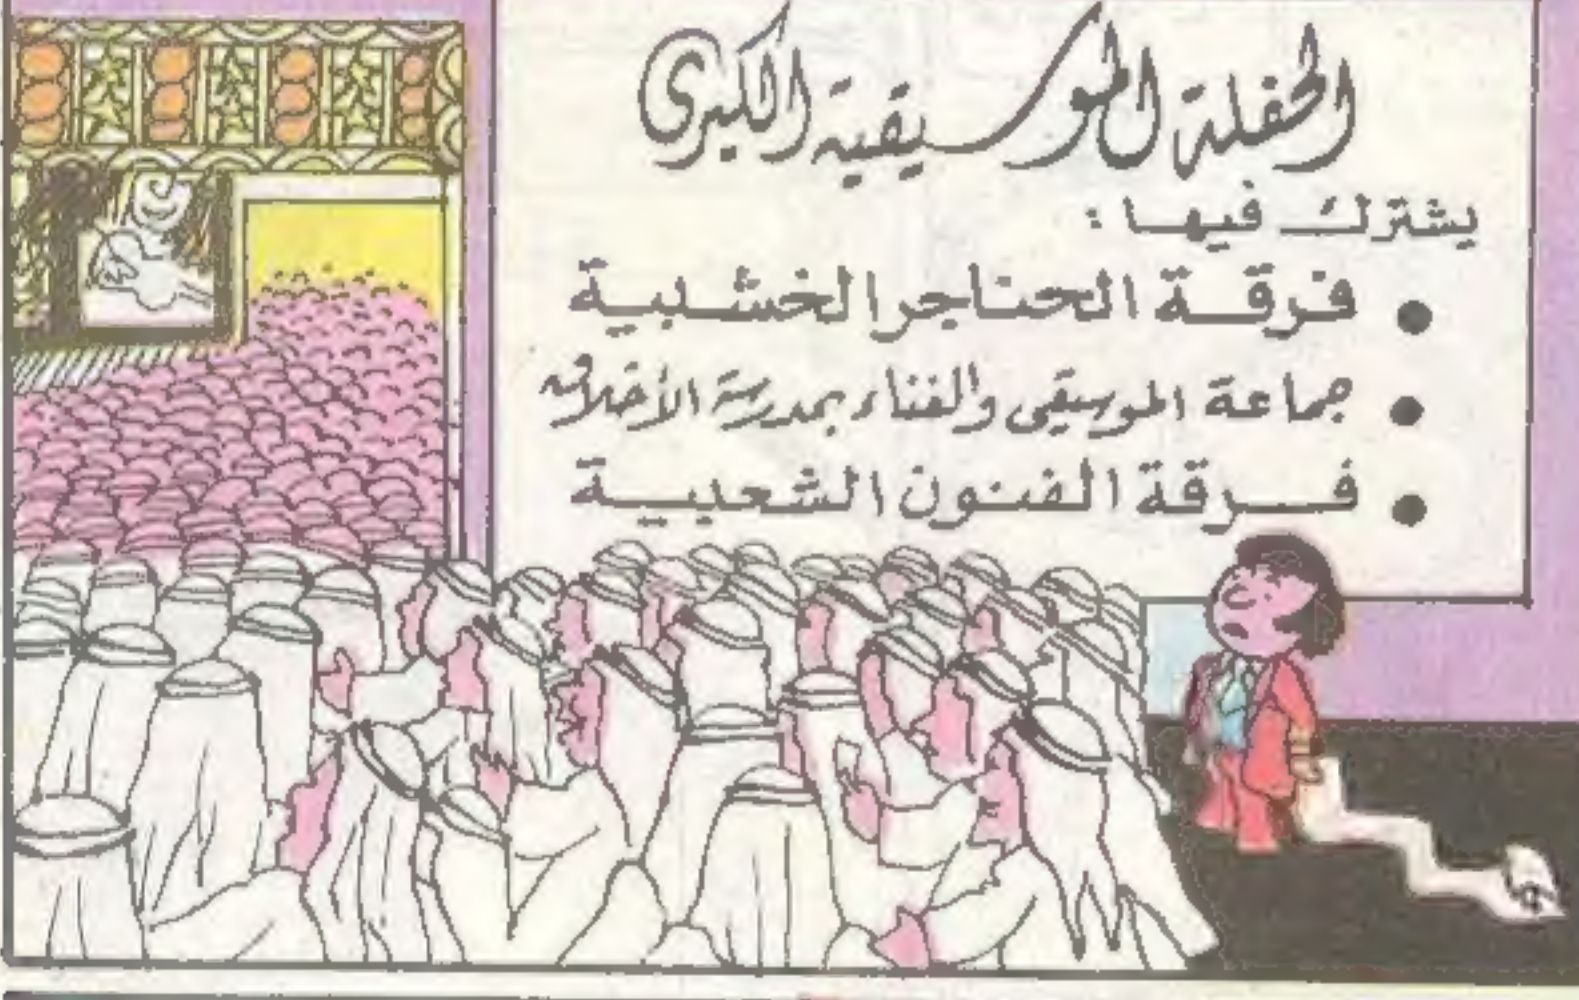 الحفلة الموسيقية الكبرى
يشترك فيها :
• فرقة الحناجر الخشبية
• جماعة الموسيقى والغناء بمدرسة الأخلاق
• فرقة الفنون الشعبية